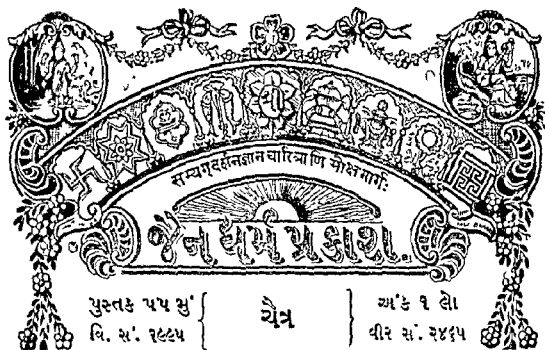 सम्यग्दर्शनज्ञानचारित्राणि मोक्षमार्गः
જૈન ધર્મ પ્રકાશ.
પુસ્તક ૫૫ મું
વિ. સં. ૧૯૯૫
ચૈત્ર
અંક ૧ લો
વીર સં. ૨૪૬૫